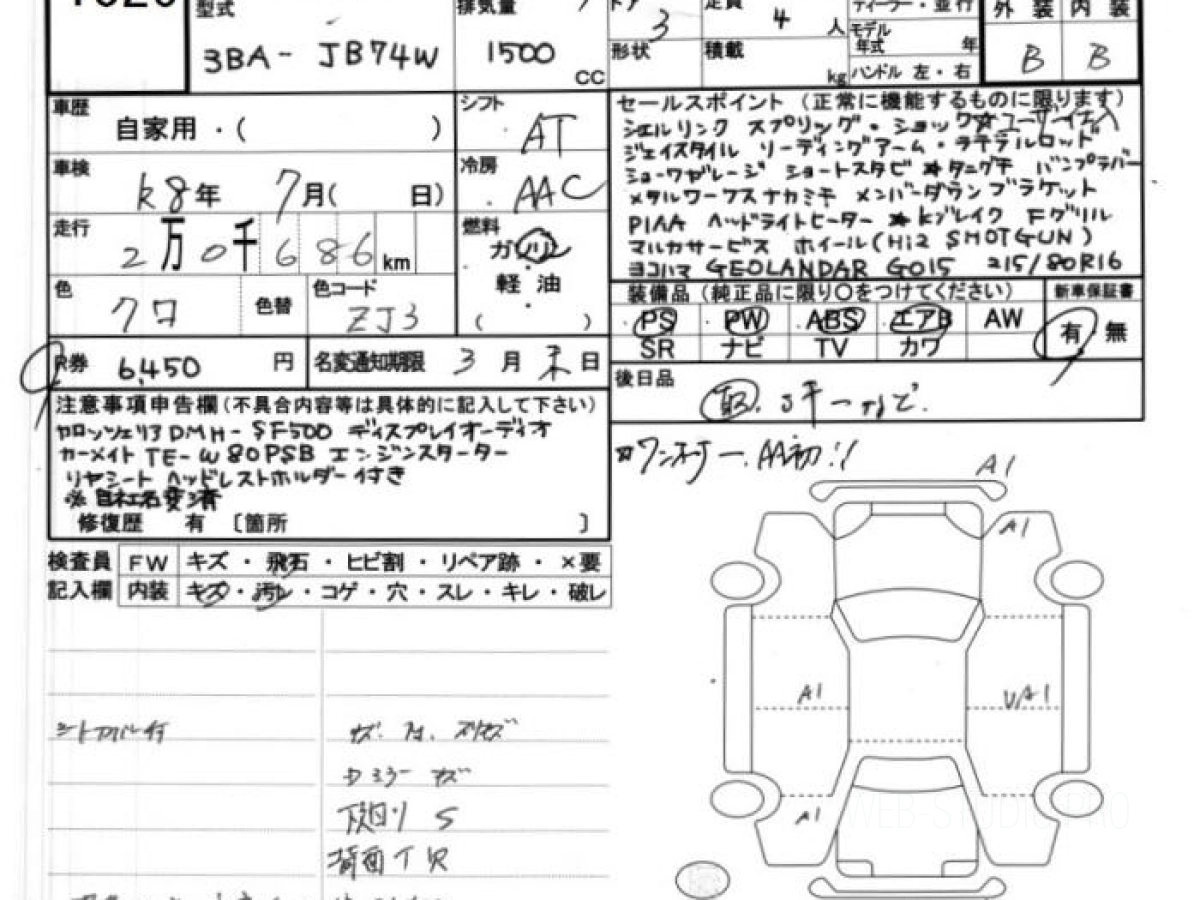 型式 排気量 ドア 3 定員 4 人 ディーラー・並行 外装 内装
3BA- JB74W 1500 CC 形状 積載 kg モデル年式 年 B B
ハンドル 左・右
車歴 自家用・( ) シフト AT
セールスポイント (正常に機能するものに限ります)
シエルリンク スプリング・ショック
ジェイスタイル リーディングアーム・ラテラルロッド
ショーワガレージ ショートスタビ タニグチ バンプラバー
メタルワークスナカミチ メンバーダウンブラケット
PIAA ヘッドライトヒーター Kブレイク Fグリル
マルカサービス ホイール(Hi2 SHOTGUN)
ヨコハマ GEOLANDAR G015 215/80R16
車検 R8年 7月( 日) 冷房 AAC
走行 2万0千686km 燃料 ガソリン
軽油
( )
色 クロ 色替 色コード ZJ3
装備品 (純正品に限り〇をつけてください) 新車保証書
PS PW ABS エアB AW 有・無
SR ナビ TV カワ
R券 6,450 円 名変通知期限 3月末日
後日品 取、sキーなど.
注意事項申告欄(不具合内容等は具体的に記入して下さい)
カロッツェリア DMH-SF500 ディスプレイオーディオ
カーメイト TE-W80PSB エンジンスターター
リヤシート ヘッドレストホルダー付き
※自社名変済
修復歴 有 〔箇所 〕
ワンオーナー、AA初!!
検査員 FW キズ・飛石・ヒビ割・リペア跡・×要
記入欄 内装 キズ・汚レ・コゲ・穴・スレ・キレ・破レ
A1
A1
A1 UA1
A1
シートカバー付
ミラー
下廻り S
背面T
WEB-STUDIO.PRO